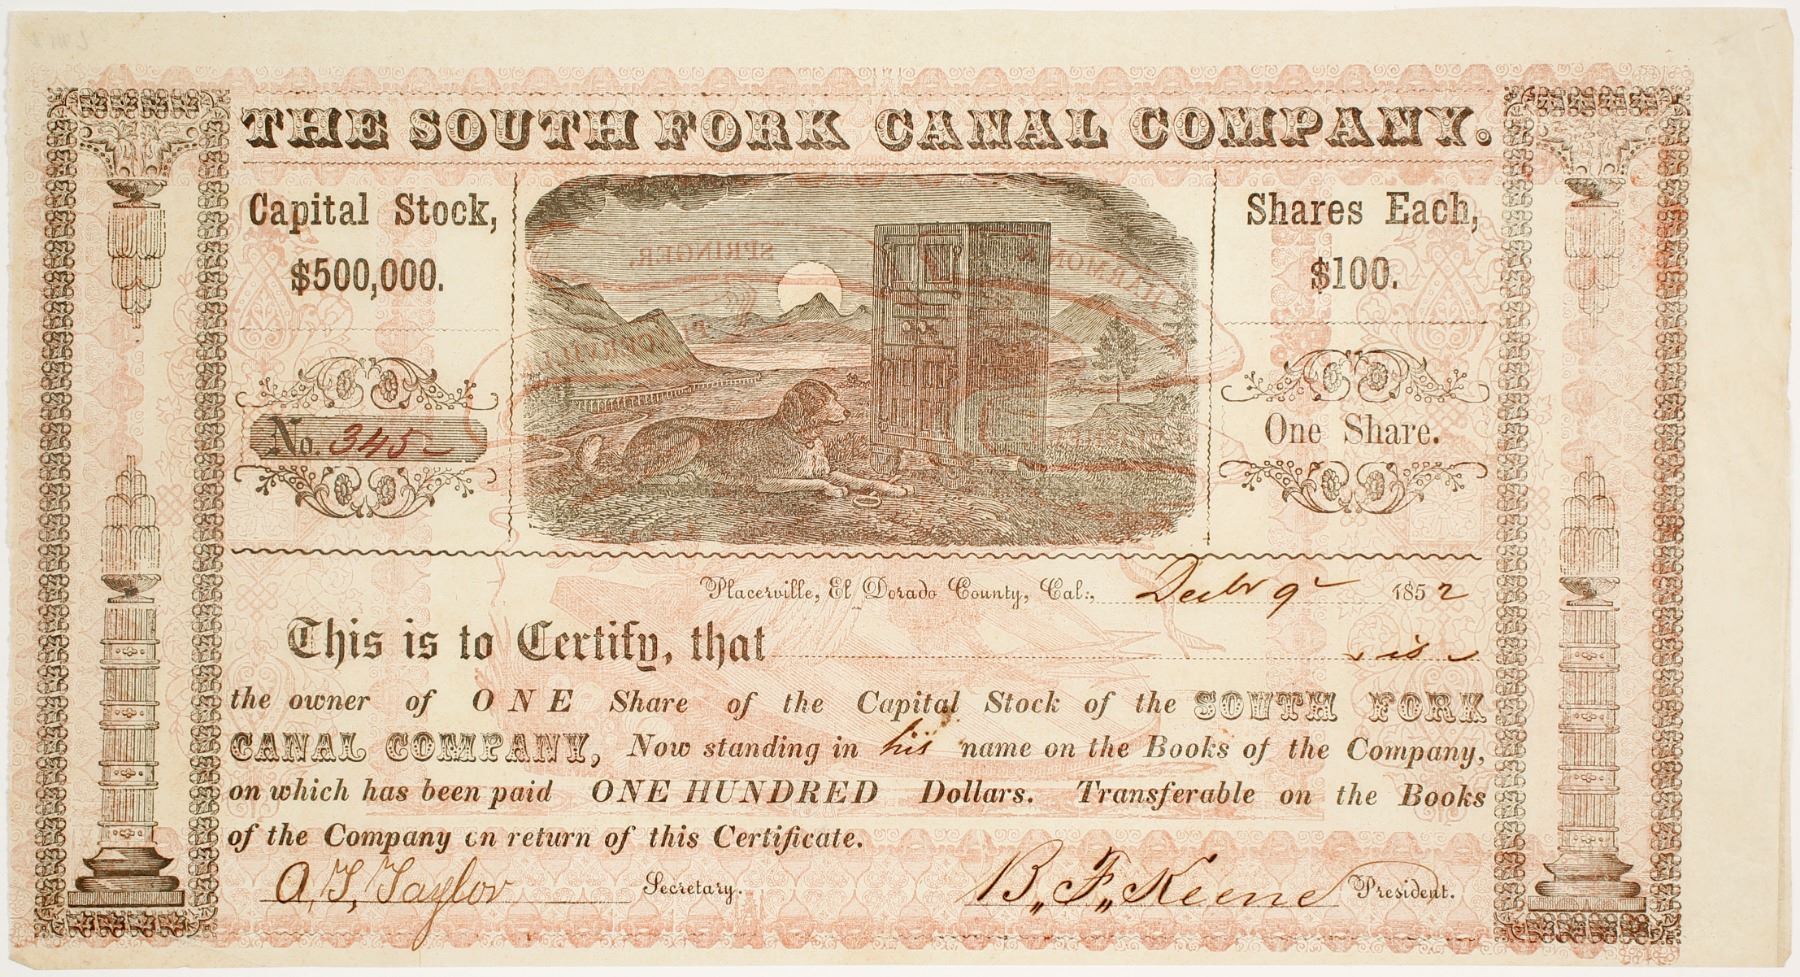 THE SOUTH FORK CANAL COMPANY.
Capital Stock,
$500,000.
Shares Each,
$100.
HARMON & SPRINGER,
No. 345
One Share.
Placerville, El Dorado County, Cal:, Decbr 9 1852
This is to Certify, that is
the owner of ONE Share of the Capital Stock of the SOUTH FORK
CANAL COMPANY, Now standing in his name on the Books of the Company,
on which has been paid ONE HUNDRED Dollars. Transferable on the Books
of the Company on return of this Certificate.
A. T. Taylor Secretary.
B. F. Keene President.